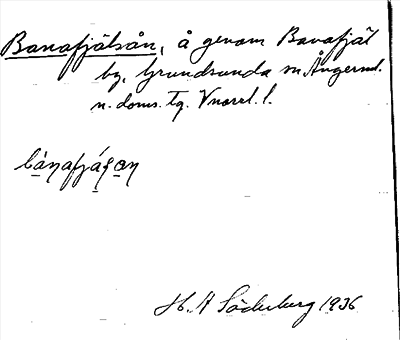 Banafjälsån, å genom Banafjäl
by, Grundsunda sn Ångerml.
n. doms. tg. Vnorrl. l.
bànafjá̱ʂa̱n
H. A Söderberg 1936